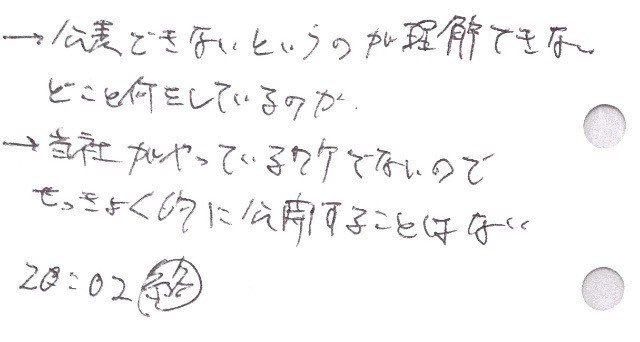 →公表できないというのが理解できない
どこと何をしているのか.
→当社がやっているワケでないので
せっきょく的に公開することはない
20:02 終